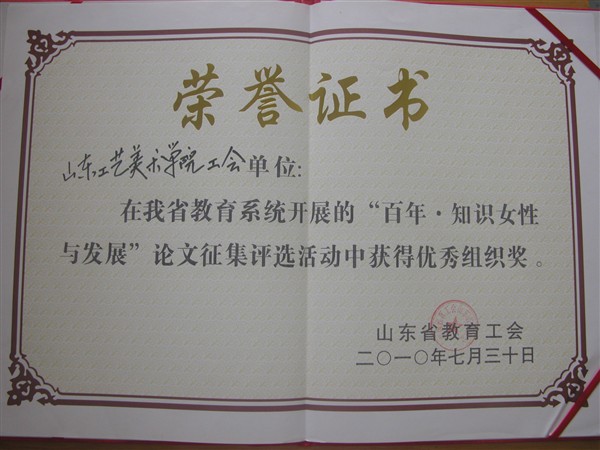 荣誉证书
山东工艺美术学院工会单位:
在我省教育系统开展的“百年·知识女性
与发展”论文征集评选活动中获得优秀组织奖。
山东省教育工会
二〇一〇年七月三十日